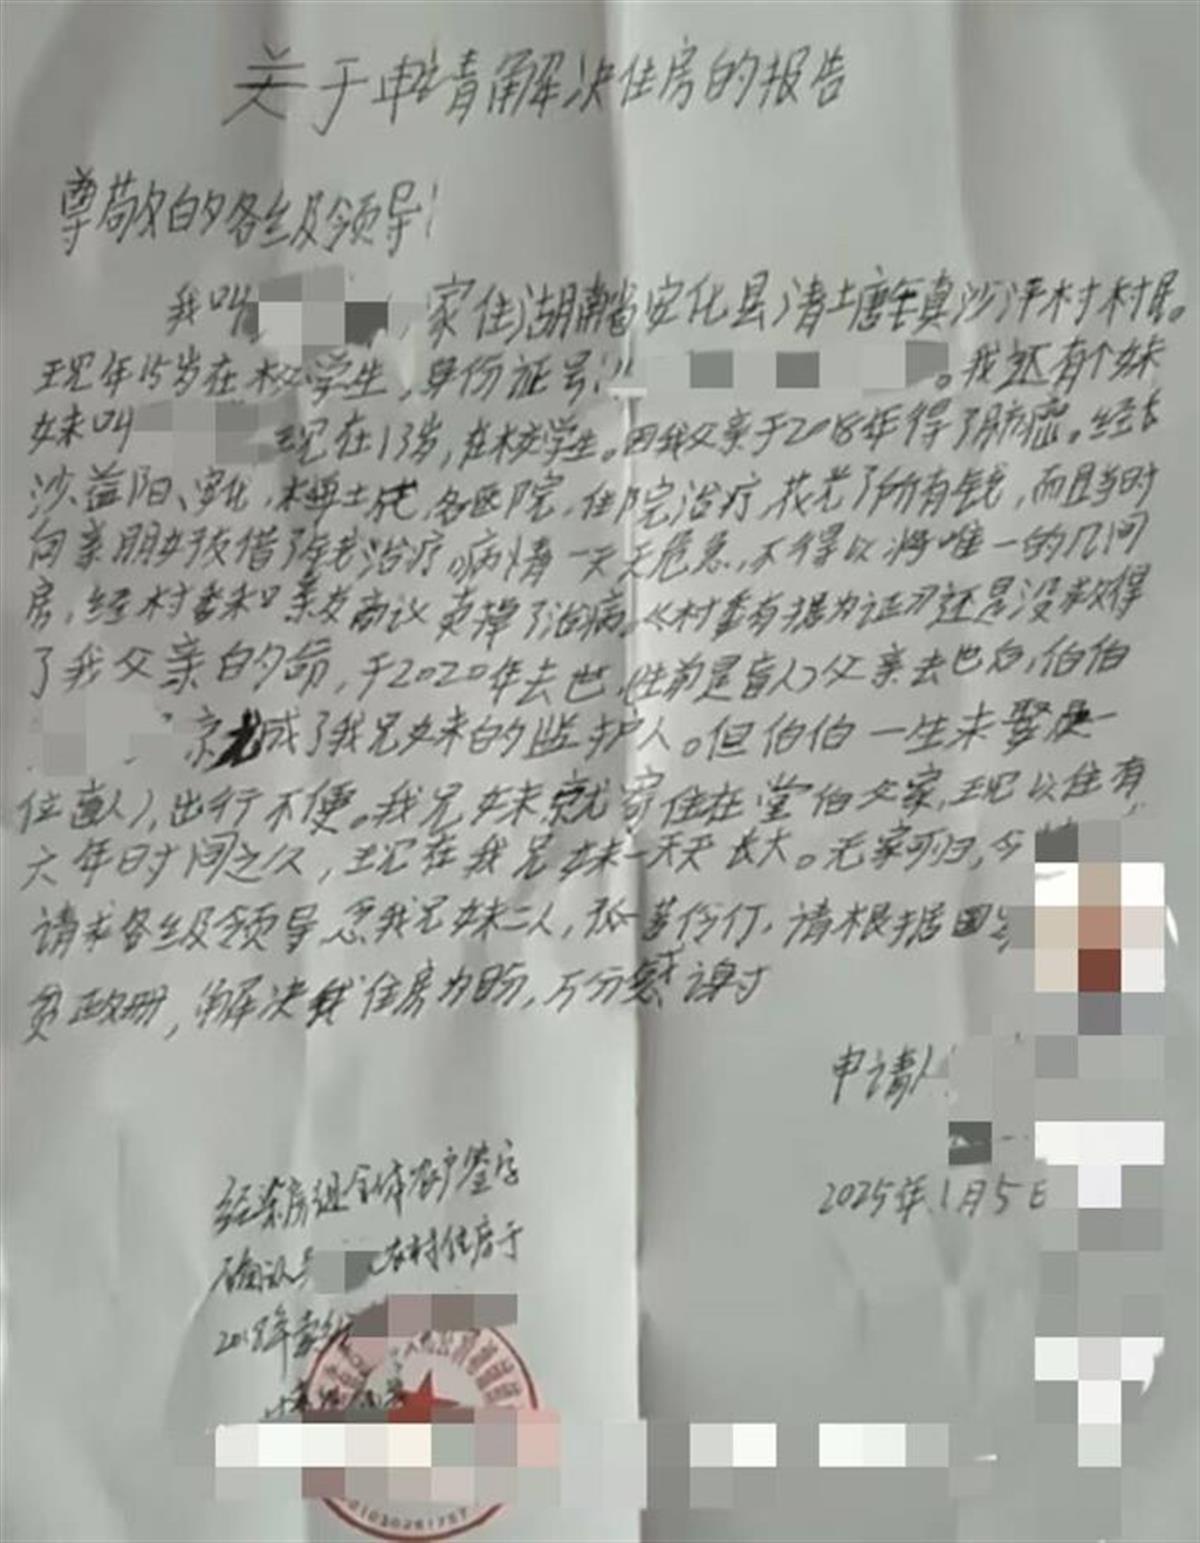 关于申请解决住房的报告
尊敬的各级领导!
我叫 ,家住湖南省安化县清塘镇沙坪村村民。
现年15岁在校学生,身份证号: 。我还有个妹
妹叫 现在13岁,在校学生。因我父亲于2018年得了肺癌。经长
沙、益阳、安化, 各医院,住院治疗,花光了所有钱,而且当时
向亲朋好友借了钱去治疗。病情一天天危急,不得以将唯一的几间
房,经村委和亲友商议卖掉了治病。《村委有据为证》还是没救得
了我父亲的命,于2020年去世,(生前是盲人)父亲去世后,伯伯
成了我兄妹的监护人。但伯伯一生未娶是一
位盲人),出行不便。我兄妹就寄住在堂伯父家,现以住有
六年时间之久,现在我兄妹一天天长大。无家可归,今
请求各级领导念我兄妹二人,孤苦伶仃,请根据国
贫政册,解决我住房为盼,万分感谢
申请人
2025年1月5日
经梁房组全体农户签字
确认 农村住房于
2018年卖